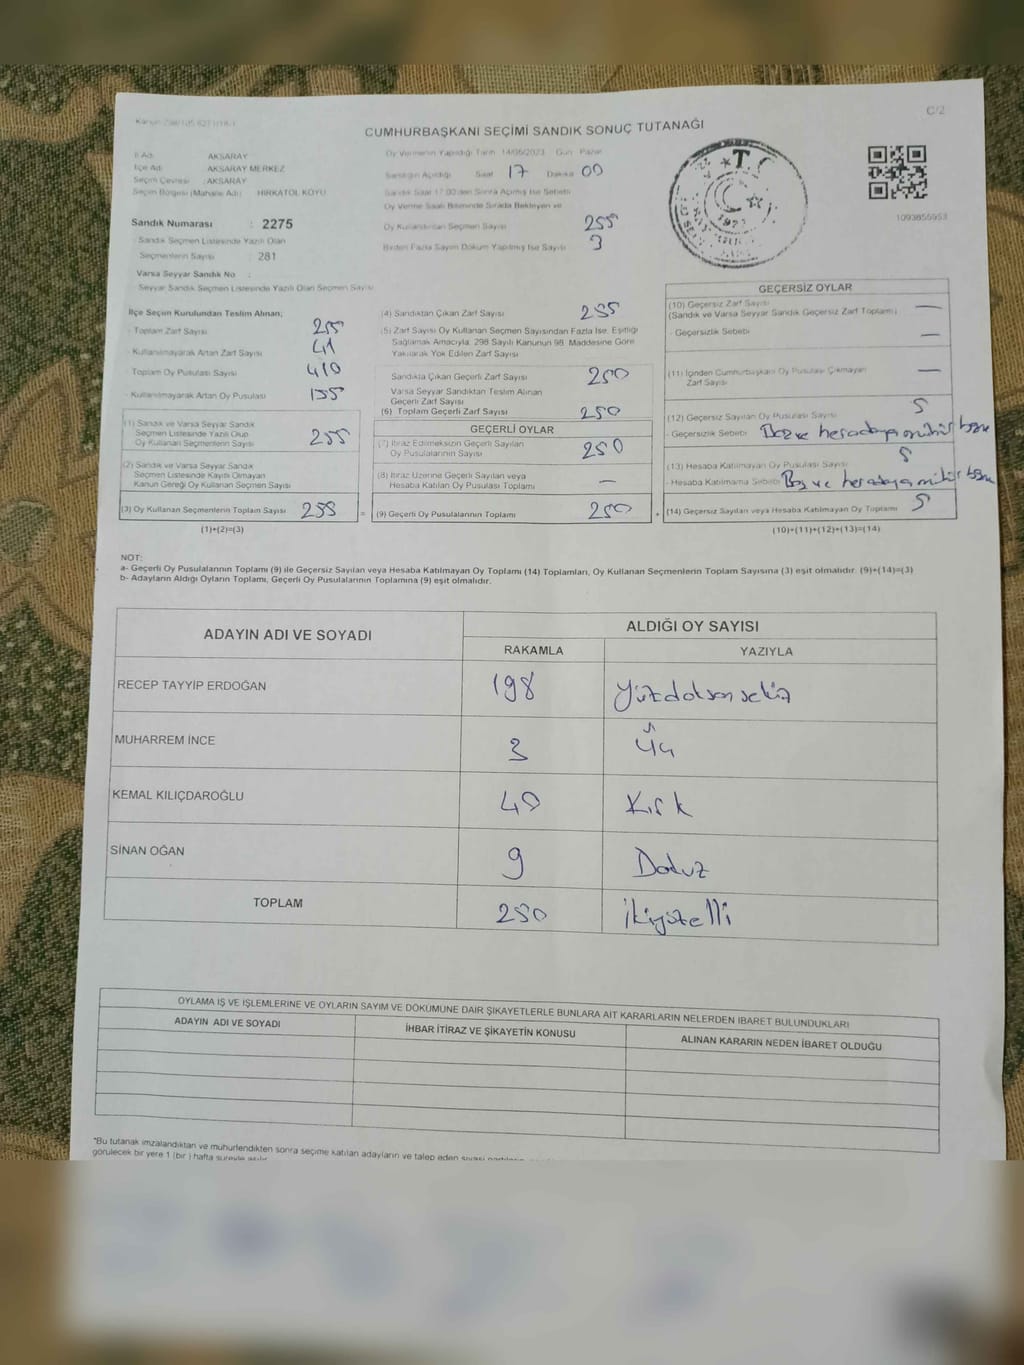 C/2
CUMHURBAŞKANI SEÇİMİ SANDIK SONUÇ TUTANAĞI
İl Adı: AKSARAY
İlçe Adı: AKSARAY MERKEZ
Seçim Çevresi : AKSARAY
Seçim Bölgesi (Mahalle Adı) HIRKATOL KÖYÜ
Sandık Numarası : 2275
Sandık Seçmen Listesinde Yazılı Olan
Seçmenlerin Sayısı : 281
Varsa Seyyar Sandık No :
Seyyar Sandık Seçmen Listesinde Yazılı Olan Seçmen Sayısı
Oy Vermenin Yapıldığı Tarih 14/05/2023 Gün Pazar
Sandığın Açıldığı Saat 17 Dakika 00
Sandık Saat 17:00'den Sonra Açılmış İse Sebebi
Oy Verme Saati Bitiminde Sırada Bekleyen ve
Oy Kullandırılan Seçmen Sayısı 255
Birden Fazla Sayım Döküm Yapılmış İse Sayısı 3
1093855953
İlçe Seçim Kurulundan Teslim Alınan;
- Toplam Zarf Sayısı
- Kullanılmayarak Artan Zarf Sayısı 41
- Toplam Oy Pusulası Sayısı 410
- Kullanılmayarak Artan Oy Pusulası 155
(1) Sandık ve Varsa Seyyar Sandık
Seçmen Listesinde Yazılı Olup
Oy Kullanan Seçmenlerin Sayısı 255
(2) Sandık ve Varsa Seyyar Sandık
Seçmen Listesinde Kayıtlı Olmayan
Kanun Gereği Oy Kullanan Seçmen Sayısı
(3) Oy Kullanan Seçmenlerin Toplam Sayısı 255
(1)+(2)=(3)
(4) Sandıktan Çıkan Zarf Sayısı 255
(5) Zarf Sayısı Oy Kullanan Seçmen Sayısından Fazla İse, Eşitliği
Sağlamak Amacıyla, 298 Sayılı Kanunun 98. Maddesine Göre
Yakılarak Yok Edilen Zarf Sayısı
Sandıkta Çıkan Geçerli Zarf Sayısı 250
Varsa Seyyar Sandıktan Teslim Alınan
Geçerli Zarf Sayısı
(6) Toplam Geçerli Zarf Sayısı 250
GEÇERLİ OYLAR
(7) İtiraz Edilmeksizin Geçerli Sayılan
Oy Pusulalarının Sayısı 250
(8) İtiraz Üzerine Geçerli Sayılan veya
Hesaba Katılan Oy Pusulası Toplamı —
= (9) Geçerli Oy Pusulalarının Toplamı 250 +
GEÇERSİZ OYLAR
(10) Geçersiz Zarf Sayısı —
(Sandık ve Varsa Seyyar Sandık Geçersiz Zarf Toplamı)
- Geçersizlik Sebebi —
(11) İçinden Cumhurbaşkanı Oy Pusulası Çıkmayan —
Zarf Sayısı
(12) Geçersiz Sayılan Oy Pusulası Sayısı 5
- Geçersizlik Sebebi Boş ve her adaya mühür basma
(13) Hesaba Katılmayan Oy Pusulası Sayısı 5
- Hesaba Katılmama Sebebi Boş ve her adaya mühür basma
(14) Geçersiz Sayılan veya Hesaba Katılmayan Oy Toplamı 5
(10)+(11)+(12)+(13)=(14)
NOT:
a- Geçerli Oy Pusulalarının Toplamı (9) ile Geçersiz Sayılan veya Hesaba Katılmayan Oy Toplamı (14) Toplamları, Oy Kullanan Seçmenlerin Toplam Sayısına (3) eşit olmalıdır. (9)+(14)=(3)
b- Adayların Aldığı Oyların Toplamı, Geçerli Oy Pusulalarının Toplamına (9) eşit olmalıdır.
ADAYIN ADI VE SOYADI
ALDIĞI OY SAYISI
RAKAMLA YAZIYLA
RECEP TAYYİP ERDOĞAN 198 Yüzdoksansekiz
MUHARREM İNCE 3 Üç
KEMAL KILIÇDAROĞLU 40 Kırk
SİNAN OĞAN 9 Dokuz
TOPLAM 250 ikiyüzelli
OYLAMA İŞ VE İŞLEMLERİNE VE OYLARIN SAYIM VE DÖKÜMÜNE DAİR ŞİKAYETLERLE BUNLARA AİT KARARLARIN NELERDEN İBARET BULUNDUKLARI
ADAYIN ADI VE SOYADI İHBAR İTİRAZ VE ŞİKAYETİN KONUSU ALINAN KARARIN NEDEN İBARET OLDUĞU
"Bu tutanak imzalandıktan ve mühürlendikten sonra seçime katılan adayların ve talep eden siyasi
görülecek bir yere 1 (bir) hafta süreyle asılır